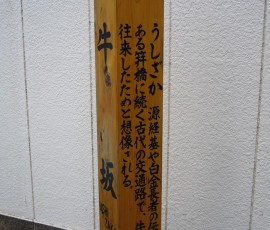 うしざか 源経基や白金長者の伝
ある笄橋に続く古代の交通路で、牛
往来したためと想像される。
牛 坂